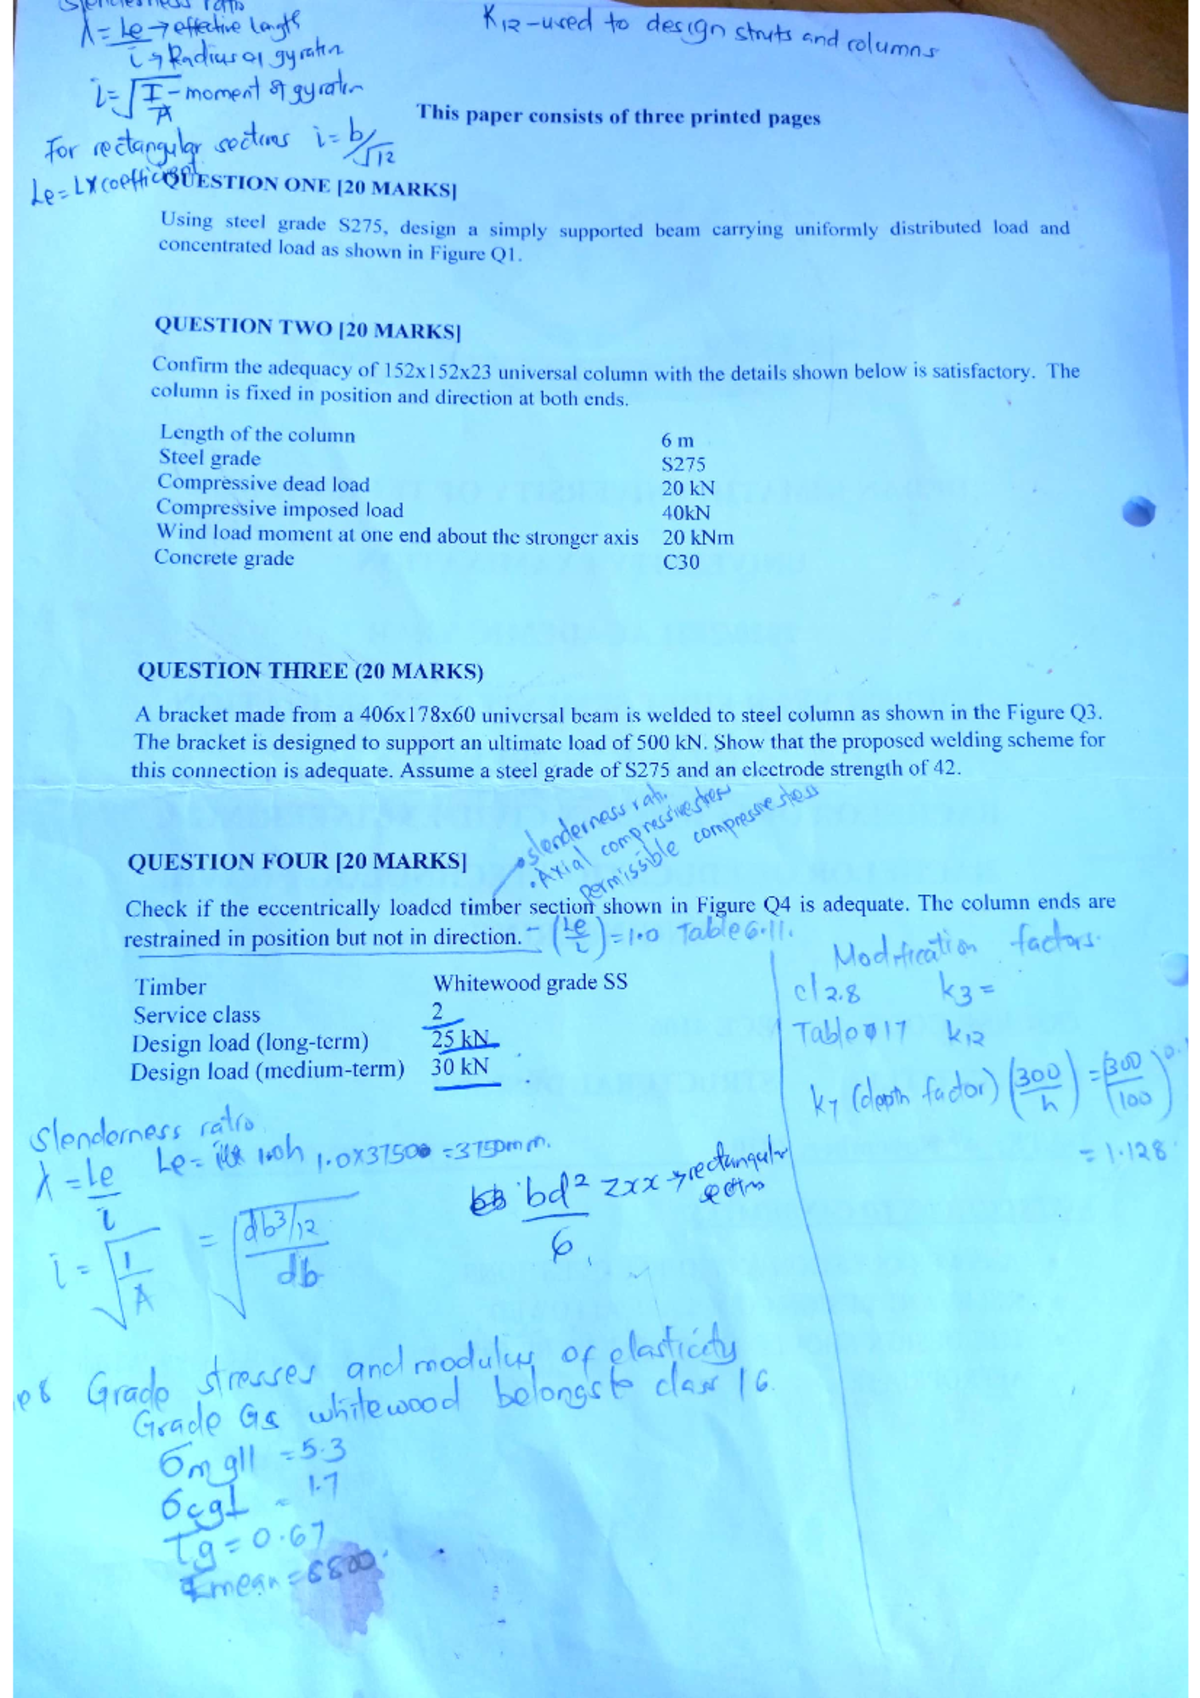 λ = Le → effective length
i → Radius of gyration
i = √I/A - moment of gyration
For rectangular sections i = b/√12
Le = L x coefficient
K12 - used to design struts and columns
This paper consists of three printed pages
QUESTION ONE [20 MARKS]
Using steel grade S275, design a simply supported beam carrying uniformly distributed load and
concentrated load as shown in Figure Q1.
QUESTION TWO [20 MARKS]
Confirm the adequacy of 152x152x23 universal column with the details shown below is satisfactory. The
column is fixed in position and direction at both ends.
Length of the column 6 m
Steel grade S275
Compressive dead load 20 kN
Compressive imposed load 40kN
Wind load moment at one end about the stronger axis 20 kNm
Concrete grade C30
QUESTION THREE (20 MARKS)
A bracket made from a 406x178x60 universal beam is welded to steel column as shown in the Figure Q3.
The bracket is designed to support an ultimate load of 500 kN. Show that the proposed welding scheme for
this connection is adequate. Assume a steel grade of S275 and an electrode strength of 42.
• Slenderness rati.
• Axial compressive stress
Permissible compressive stess
QUESTION FOUR [20 MARKS]
Check if the eccentrically loaded timber section shown in Figure Q4 is adequate. The column ends are
restrained in position but not in direction. - (Le/L) = 1.0 Table 6.11.
Timber Whitewood grade SS
Service class 2
Design load (long-term) 25 kN
Design load (medium-term) 30 kN
Modification factors.
cl 2.8 k3 =
Table 17 k12
k7 (depth factor) (300/h) = (300/100)
= 1.128
Slenderness ratio
λ = Le/i Le = 1.0h 1.0x3750 = 3750mm.
i = √I/A = √db³/12/db
bd²/6 Zxx → rectangular
sections
Grade stresses and modulus of elasticity
Grade GS whitewood belongs to class 16.
σm g|| = 5.3
σcg⊥ = 1.7
τg = 0.67
Emean = 8800.